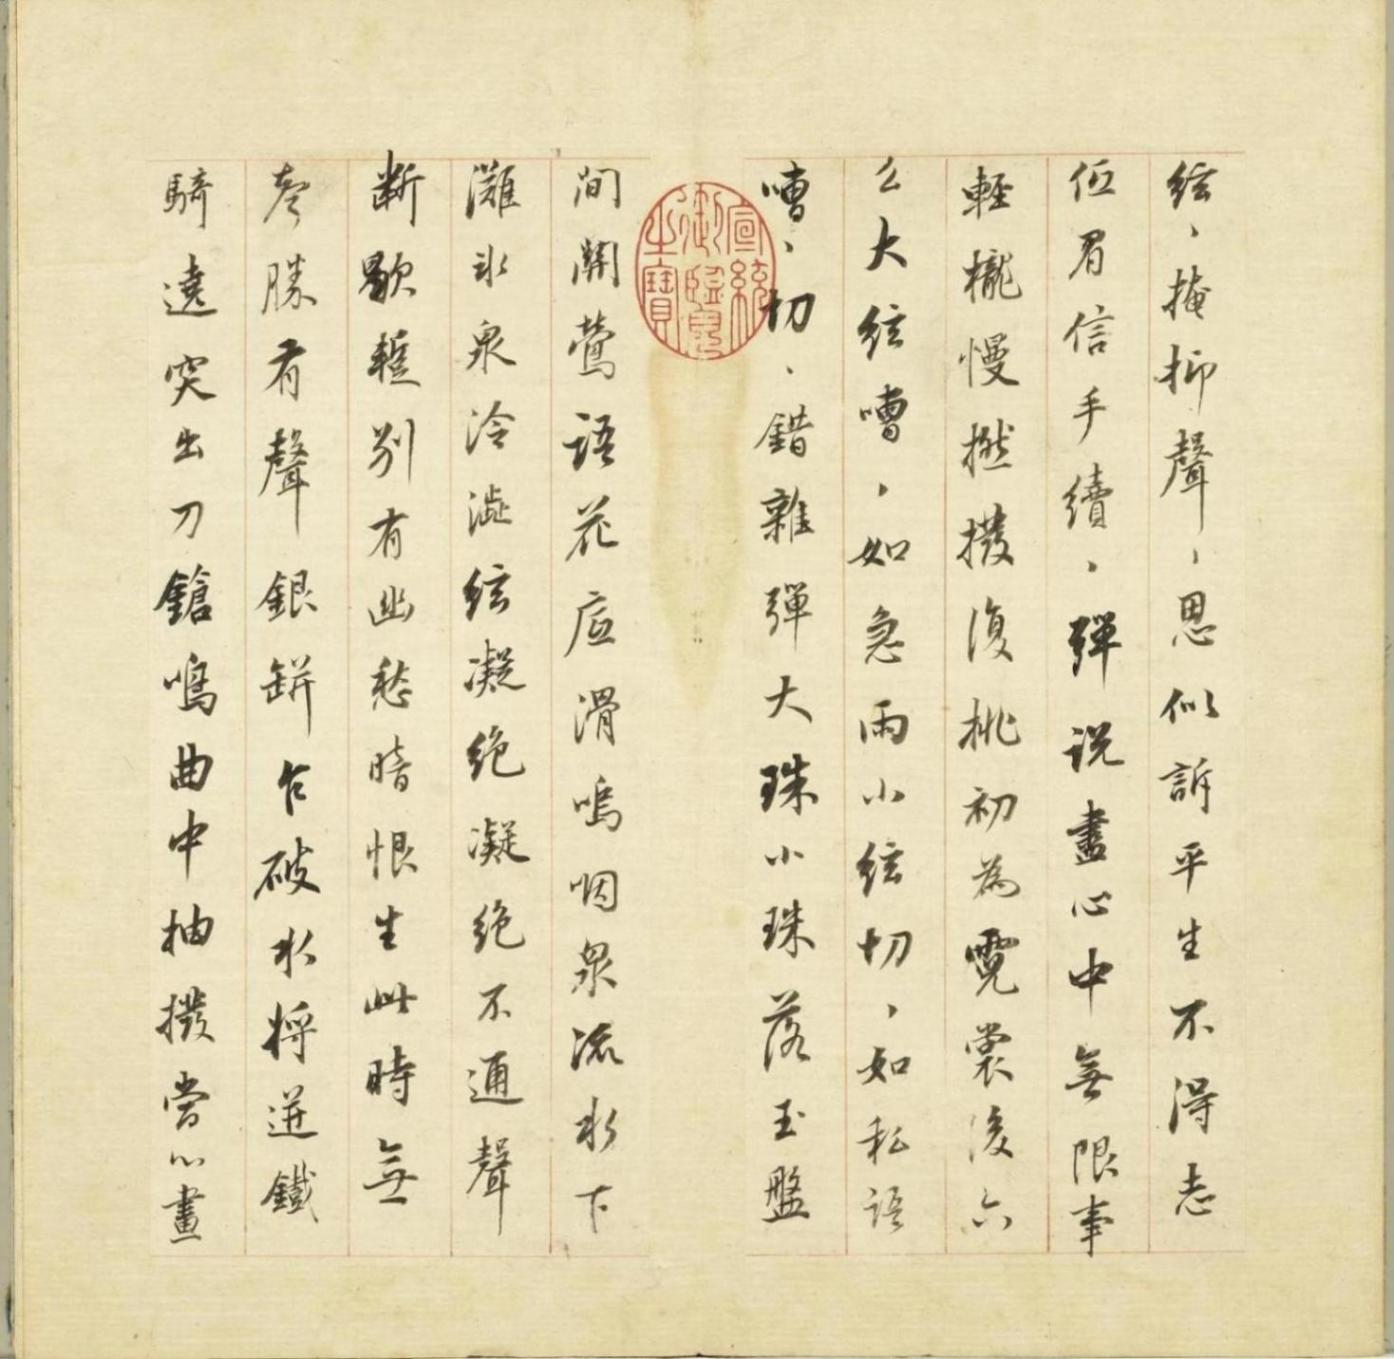 絃、掩抑聲、思似訴平生不得志
低眉信手續、彈説盡心中無限事
輕攏慢撚撥復挑初為霓裳後六
幺大絃嘈、如急雨小絃切、如私語
嘈、切、錯雜彈大珠小珠落玉盤
間關鶯語花底滑嗚咽泉流水下
灘氷泉冷澁絃凝絶凝絶不通聲
斷歇輒別有幽愁暗恨生此時無
聲勝有聲銀缾乍破水將迸鐵
騎遶突出刀鎗鳴曲中抽撥當心畫
宣統御覽之寶